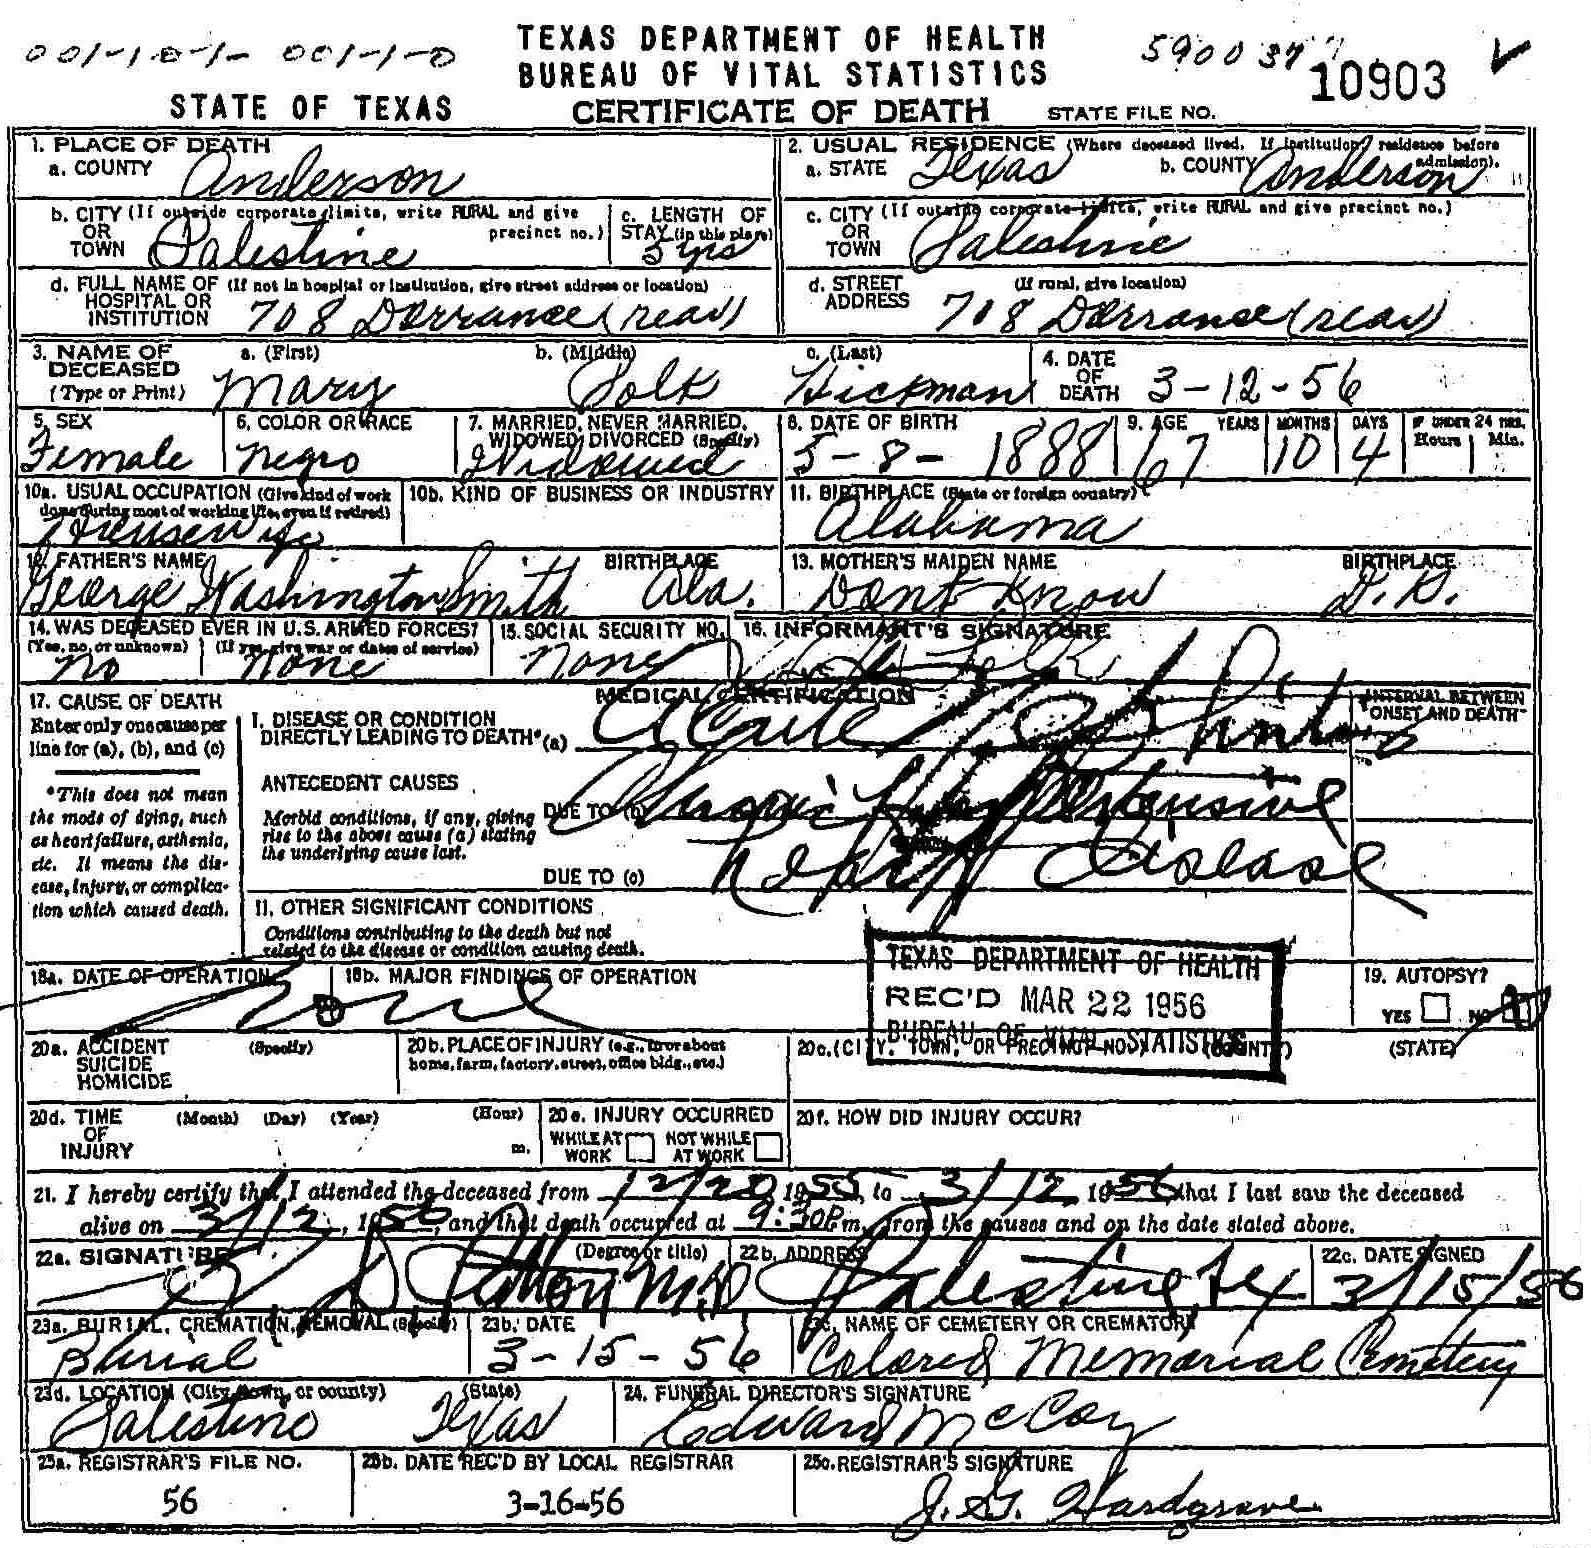 001-101- 001-1-0
TEXAS DEPARTMENT OF HEALTH
BUREAU OF VITAL STATISTICS
590037
10903
STATE OF TEXAS
CERTIFICATE OF DEATH
STATE FILE NO.
1. PLACE OF DEATH
a. COUNTY Anderson
2. USUAL RESIDENCE (Where deceased lived. If institution, residence before admission).
a. STATE Texas
b. COUNTY Anderson
b. CITY (If outside corporate limits, write RURAL and give precinct no.)
OR
TOWN Palestine
c. LENGTH OF
STAY (in this place)
5 yrs
c. CITY (If outside corporate limits, write RURAL and give precinct no.)
OR
TOWN Palestine
d. FULL NAME OF (If not in hospital or institution, give street address or location)
HOSPITAL OR
INSTITUTION 708 Dorrance (rear)
d. STREET (If rural, give location)
ADDRESS 708 Dorrance (rear)
3. NAME OF DECEASED (Type or Print)
a. (First) Mary
b. (Middle) Polk
c. (Last) Hickman
4. DATE OF DEATH 3-12-56
5. SEX
Female
6. COLOR OR RACE
Negro
7. MARRIED, NEVER MARRIED, WIDOWED, DIVORCED (Specify)
Widowed
8. DATE OF BIRTH
5-8-1888
9. AGE YEARS MONTHS DAYS IF UNDER 24 HRS. Hours Min.
67 10 4
10a. USUAL OCCUPATION (Give kind of work done during most of working life, even if retired)
Housewife
10b. KIND OF BUSINESS OR INDUSTRY
11. BIRTHPLACE (State or foreign country)
Alabama
12. FATHER'S NAME BIRTHPLACE
George Washington Smith Ala.
13. MOTHER'S MAIDEN NAME BIRTHPLACE
Dont Know D.K.
14. WAS DECEASED EVER IN U.S. ARMED FORCES?
(Yes, no, or unknown) (If yes, give war or dates of service)
No None
15. SOCIAL SECURITY NO.
None
16. INFORMANT'S SIGNATURE
17. CAUSE OF DEATH
Enter only one cause per
line for (a), (b), and (c)
*This does not mean
the mode of dying, such
as heart failure, asthenia,
etc. It means the dis-
ease, injury, or complica-
tion which caused death.
MEDICAL CERTIFICATION
INTERVAL BETWEEN
ONSET AND DEATH
I. DISEASE OR CONDITION
DIRECTLY LEADING TO DEATH* (a) Acute
ANTECEDENT CAUSES
Morbid conditions, if any, giving
rise to the above cause (a) stating
the underlying cause last.
DUE TO (b) Chronic Hypertensive
DUE TO (c) Heart Disease
II. OTHER SIGNIFICANT CONDITIONS
Conditions contributing to the death but not
related to the disease or condition causing death.
TEXAS DEPARTMENT OF HEALTH
REC'D MAR 22 1956
BUREAU OF VITAL STATISTICS
18a. DATE OF OPERATION
None
18b. MAJOR FINDINGS OF OPERATION
19. AUTOPSY?
YES NO
20a. ACCIDENT (Specify)
SUICIDE
HOMICIDE
20b. PLACE OF INJURY (e.g., in or about
home, farm, factory, street, office bldg., etc.)
20c. (CITY, TOWN, OR PRECINCT NO.) (COUNTY) (STATE)
20d. TIME (Month) (Day) (Year) (Hour)
OF
INJURY m.
20e. INJURY OCCURRED
WHILE AT WORK NOT WHILE AT WORK
20f. HOW DID INJURY OCCUR?
21. I hereby certify that I attended the deceased from 12/20, 1955, to 3/12, 1956 that I last saw the deceased
alive on 3/12, 1956, and that death occurred at 9:30P m., from the causes and on the date stated above.
22a. SIGNATURE (Degree or title)
Patton M.D.
22b. ADDRESS
Palestine, Tex
22c. DATE SIGNED
3/15/56
23a. BURIAL, CREMATION, REMOVAL (Specify)
Burial
23b. DATE
3-15-56
23c. NAME OF CEMETERY OR CREMATORY
Colored Memorial Cemetery
23d. LOCATION (City, town, or county) (State)
Palestine Texas
24. FUNERAL DIRECTOR'S SIGNATURE
Edward McCoy
25a. REGISTRAR'S FILE NO.
56
25b. DATE REC'D BY LOCAL REGISTRAR
3-16-56
25c. REGISTRAR'S SIGNATURE
J. G. Hardgrave